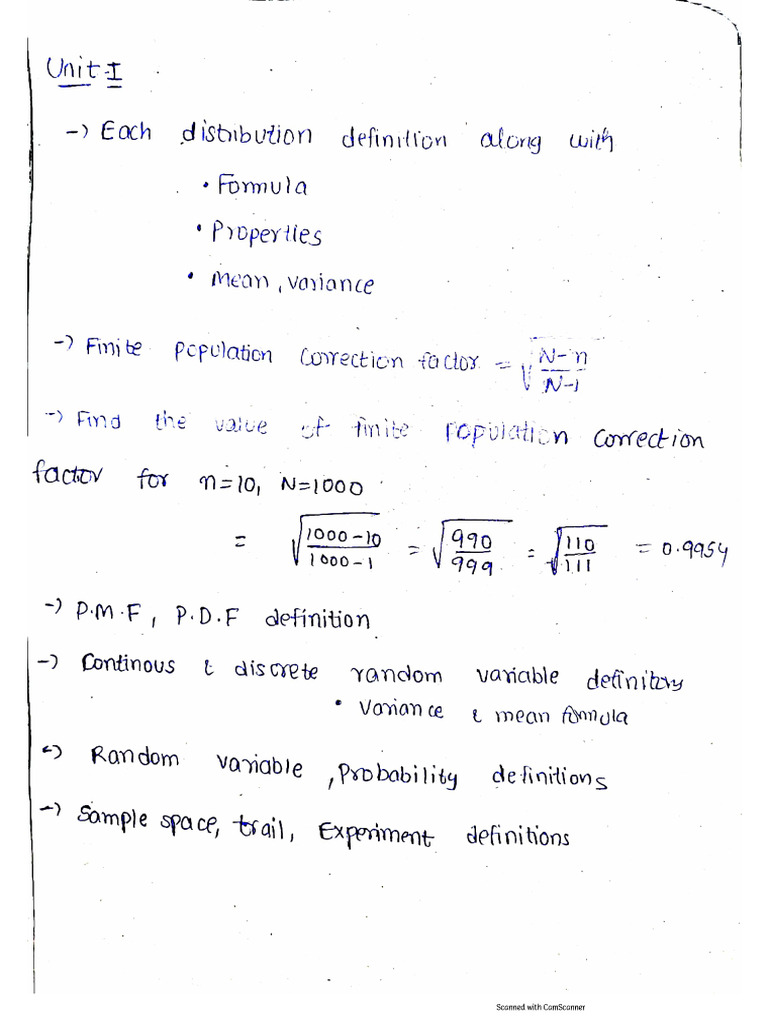 Unit-I
-) Each distribution definition along with
• Formula
• Properties
• mean, variance
-) Finite population correction factor = √(N-n/N-1)
-) Find the value of finite Population correction
factor for n=10, N=1000
= √(1000-10/1000-1) = √(990/999) = √(110/111) = 0.9954
-) P.M.F, P.D.F definition
-) Continous & discrete random variable definitory
• variance & mean formula
-) Random variable, Probability definitions
-) Sample space, trail, Experiment definitions
Scanned with CamScanner